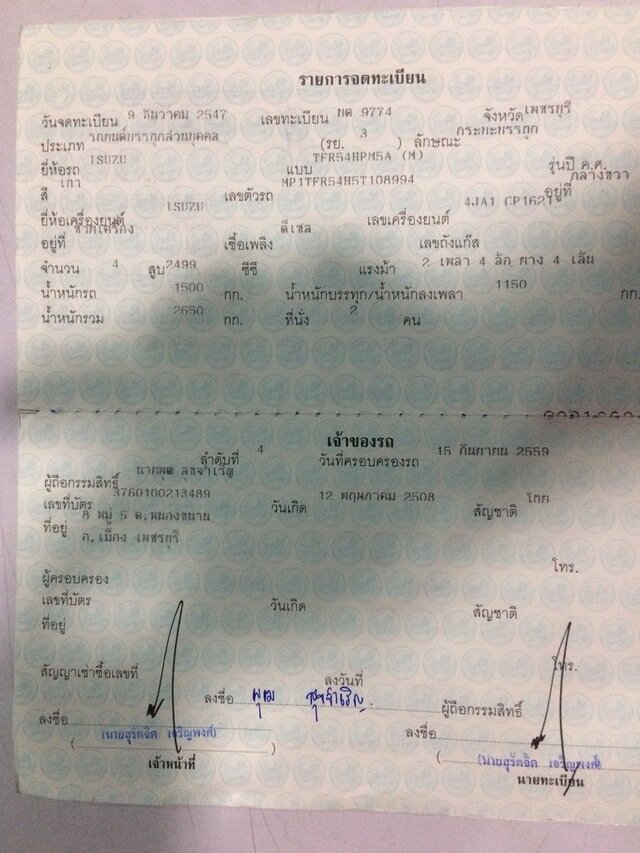 รายการจดทะเบียน
วันจดทะเบียน 9 ธันวาคม 2547 เลขทะเบียน บต 9774 จังหวัด เพชรบุรี
ประเภท รถยนต์บรรทุกส่วนบุคคล (รย. 3 ) ลักษณะ กระบะบรรทุก
ยี่ห้อรถ ISUZU แบบ TFR54HPM5A (M) รุ่นปี ค.ศ.
สี เทา เลขตัวรถ MP1TFR54H5T108994 อยู่ที่ กลางขวา
ยี่ห้อเครื่องยนต์ ISUZU เลขเครื่องยนต์ 4JA1
อยู่ที่ เชื้อเพลิง ดีเซล เลขถังแก๊ส
จำนวน 4 สูบ 2499 ซีซี แรงม้า 2 เพลา 4 ล้อ ยาง 4 เส้น
น้ำหนักรถ 1500 กก. น้ำหนักบรรทุก/น้ำหนักลงเพลา 1150 กก.
น้ำหนักรวม 2650 กก. ที่นั่ง 2 คน
เจ้าของรถ
ลำดับที่ 4 วันที่ครอบครองรถ 15 กันยายน 2559
ผู้ถือกรรมสิทธิ์ นายพุฒ สุขจำเริญ
เลขที่บัตร 3760100213489 วันเกิด 12 พฤษภาคม 2508 สัญชาติ ไทย
ที่อยู่ 8 หมู่ 5 ต.หนองขนาน
อ.เมือง เพชรบุรี
โทร.
ผู้ครอบครอง
เลขที่บัตร วันเกิด สัญชาติ
ที่อยู่
โทร.
สัญญาเช่าซื้อเลขที่ ลงวันที่
ลงชื่อ สุขจำเริญ ผู้ถือกรรมสิทธิ์
ลงชื่อ ลงชื่อ
(นายสุรัตจิต เจริญพงศ์) (นายสุรัตจิต เจริญพงศ์)
เจ้าหน้าที่ นายทะเบียน